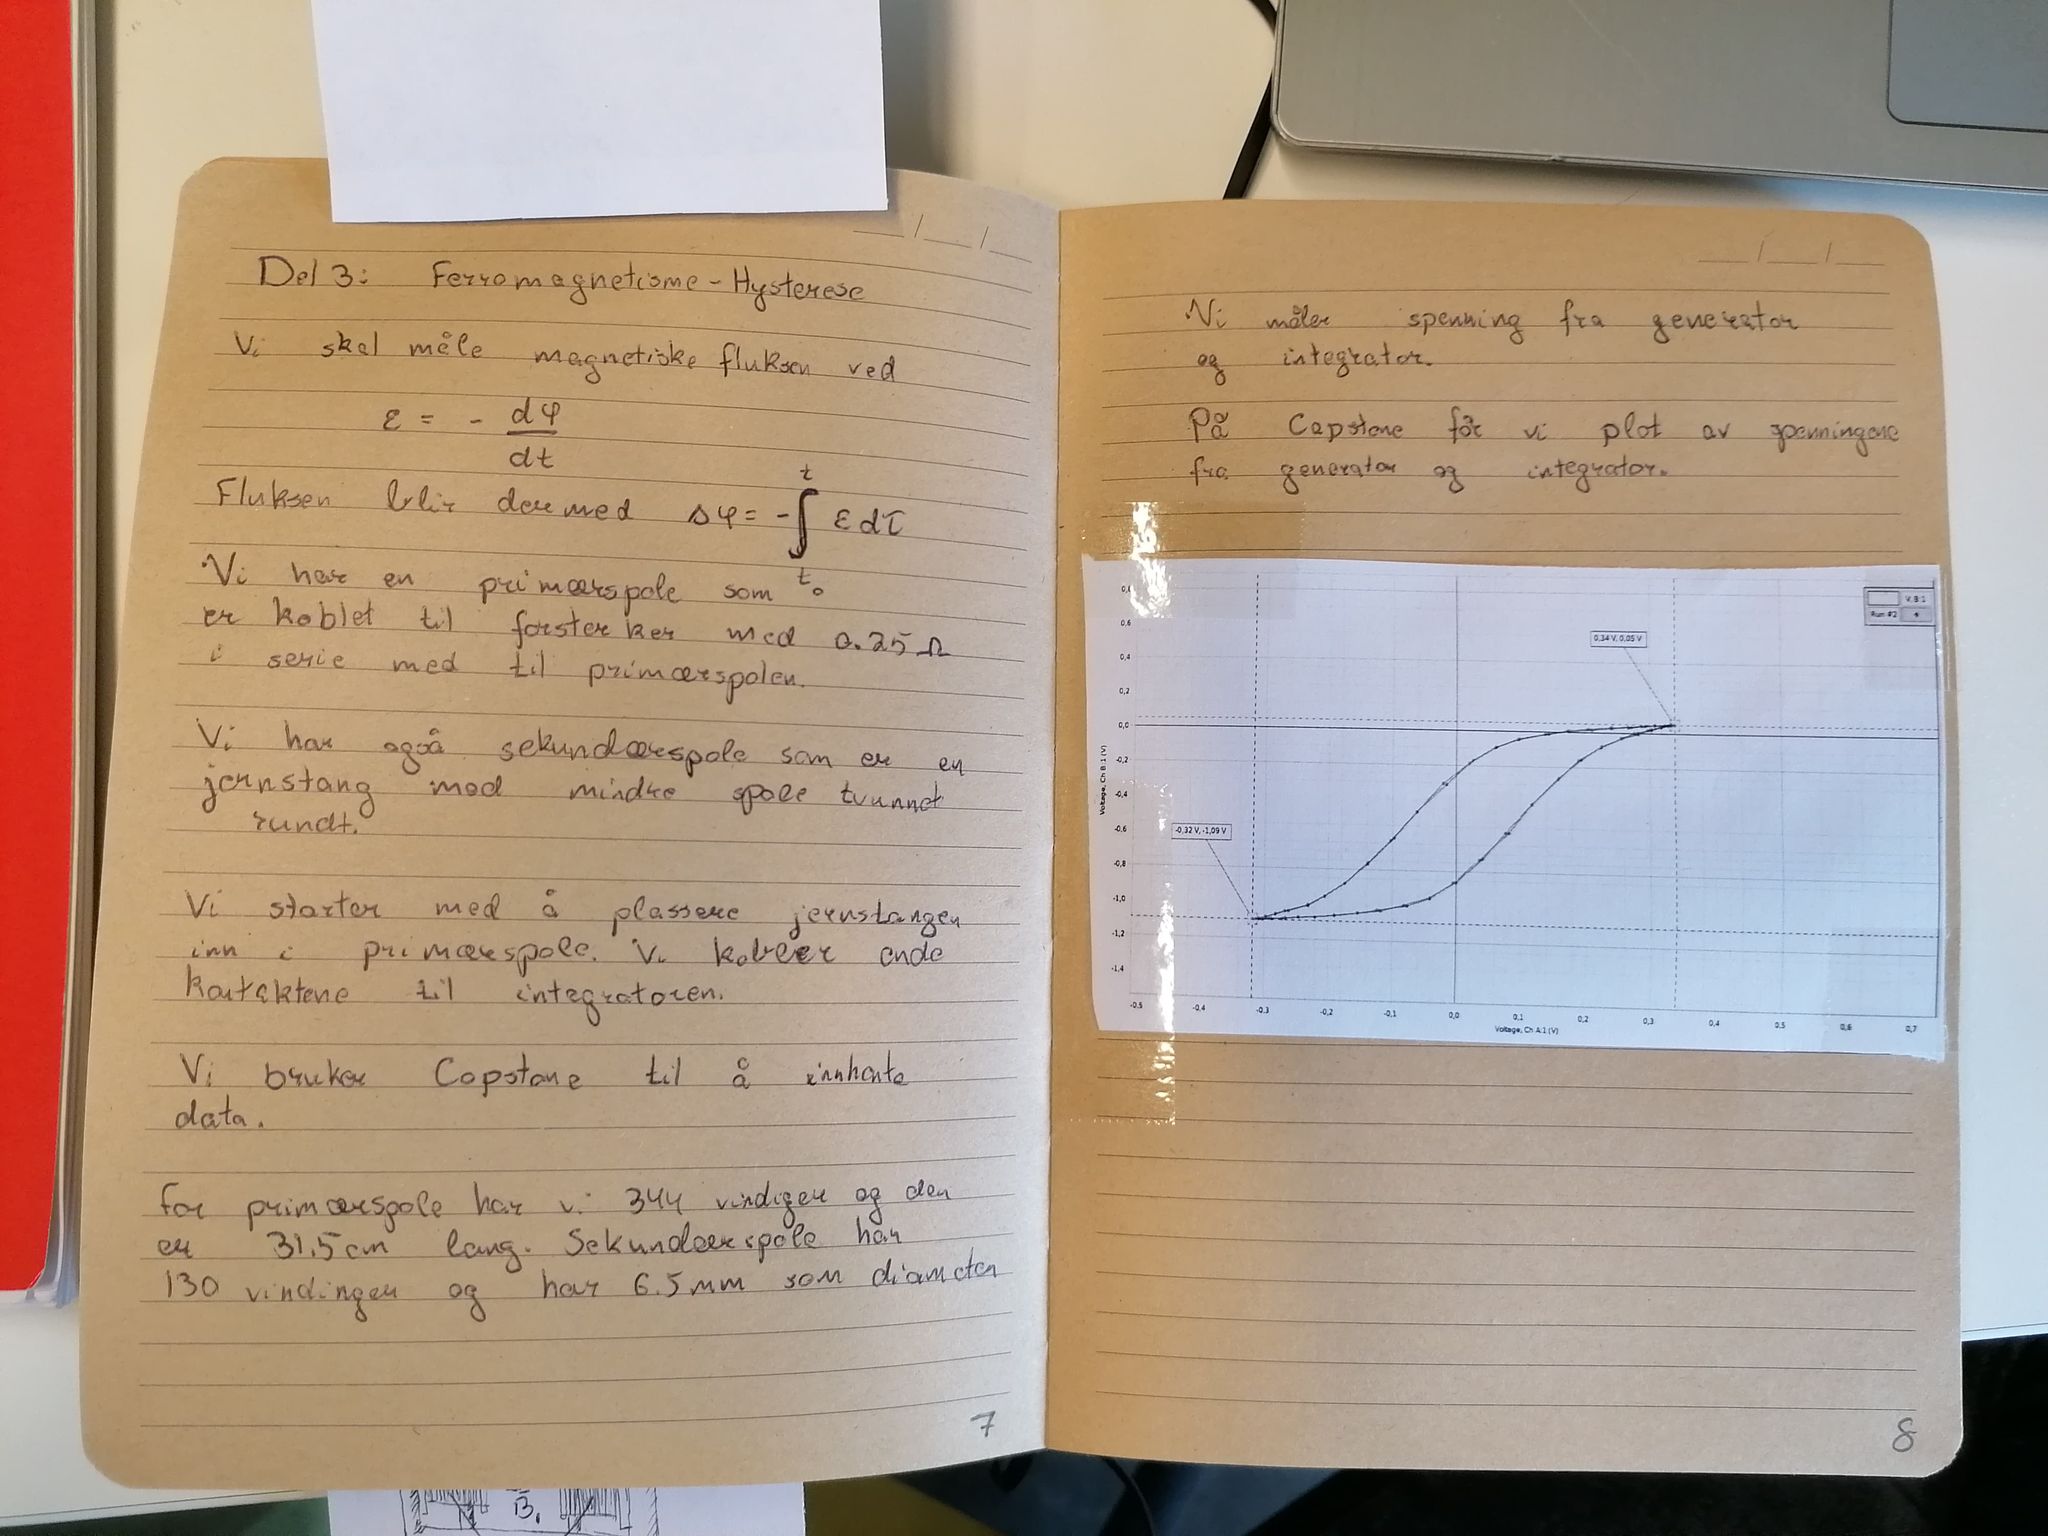 Del 3: Ferromagnetisme - Hysterese
Vi skal måle magnetiske fluksen ved
ε = - dφ/dt
Fluksen blir dermed Δφ = -∫ₜ₀ᵗ ε dτ
Vi har en primærspole som
er koblet til forsterker med 0.25 Ω
i serie med til primærspolen.
Vi har også sekundærspole som er en
jernstang med mindre spole tvunnet
rundt.
Vi starter med å plassere jernstangen
inn i primærspole. Vi kobler ende
kontaktene til integratoren.
Vi bruker Capstone til å innhente
data.
For primærspole har vi 344 vindiger og den
er 31.5cm lang. Sekundærspole har
130 vindinger og har 6.5 mm som diameter
7
Vi måler spenning fra generator
og integrator.
På Capstone får vi plot av spenningene
fra generator og integrator.
V, B:1
Run #2
0,34 V, 0,05 V
-0,32 V, -1,09 V
Voltage, Ch B:1 (V)
0,8
0,6
0,4
0,2
0,0
-0,2
-0,4
-0,6
-0,8
-1,0
-1,2
-1,4
-0,5 -0,4 -0,3 -0,2 -0,1 0,0 0,1 0,2 0,3 0,4 0,5 0,6 0,7
Voltage, Ch A:1 (V)
8
B.